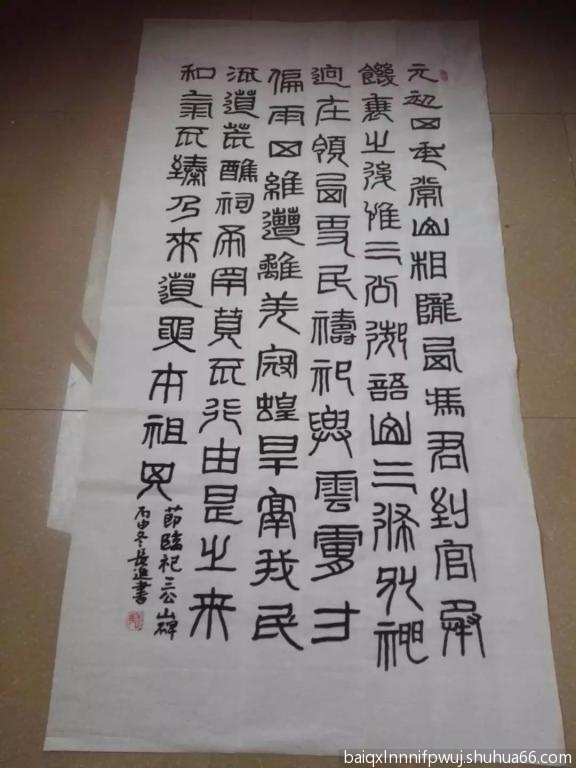 元初四年常山相隴西馮君到官承
饑衰之後惟三公御語山三條別神
迥在領西吏民禱祀興雲膚寸
偏雨四維遭離羌寇蝗旱鬲我民
流道荒醮祠希罕奠不行由是之来
和氣不臻乃來道要本祖其
節臨祀三公山碑
丙申冬長進書
baiqxlnnnifpwuj.shuhua66.com